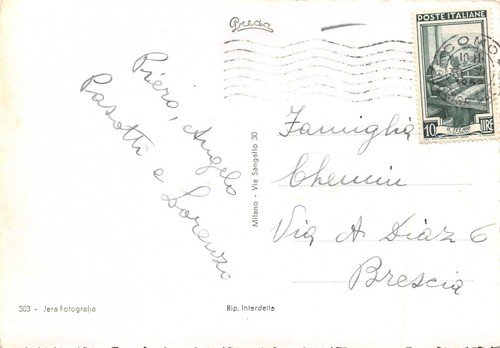 Preda
POSTE ITALIANE
COMO
10 LIRE
Piero, Angelo
Pasotti e Lorenzo
Famiglia
Chemin
Via A Diaz 6
Brescia
Milano - Via Sangallo 30
303 - Vera Fotografia
Rip. Interdetta